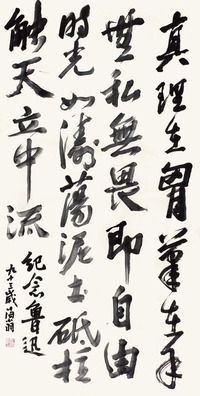 真理在胸筆在手
無私無畏即自由
時光如濤蕩泥土砥柱
觸天立中流
紀念魯迅
九十三歲海翁